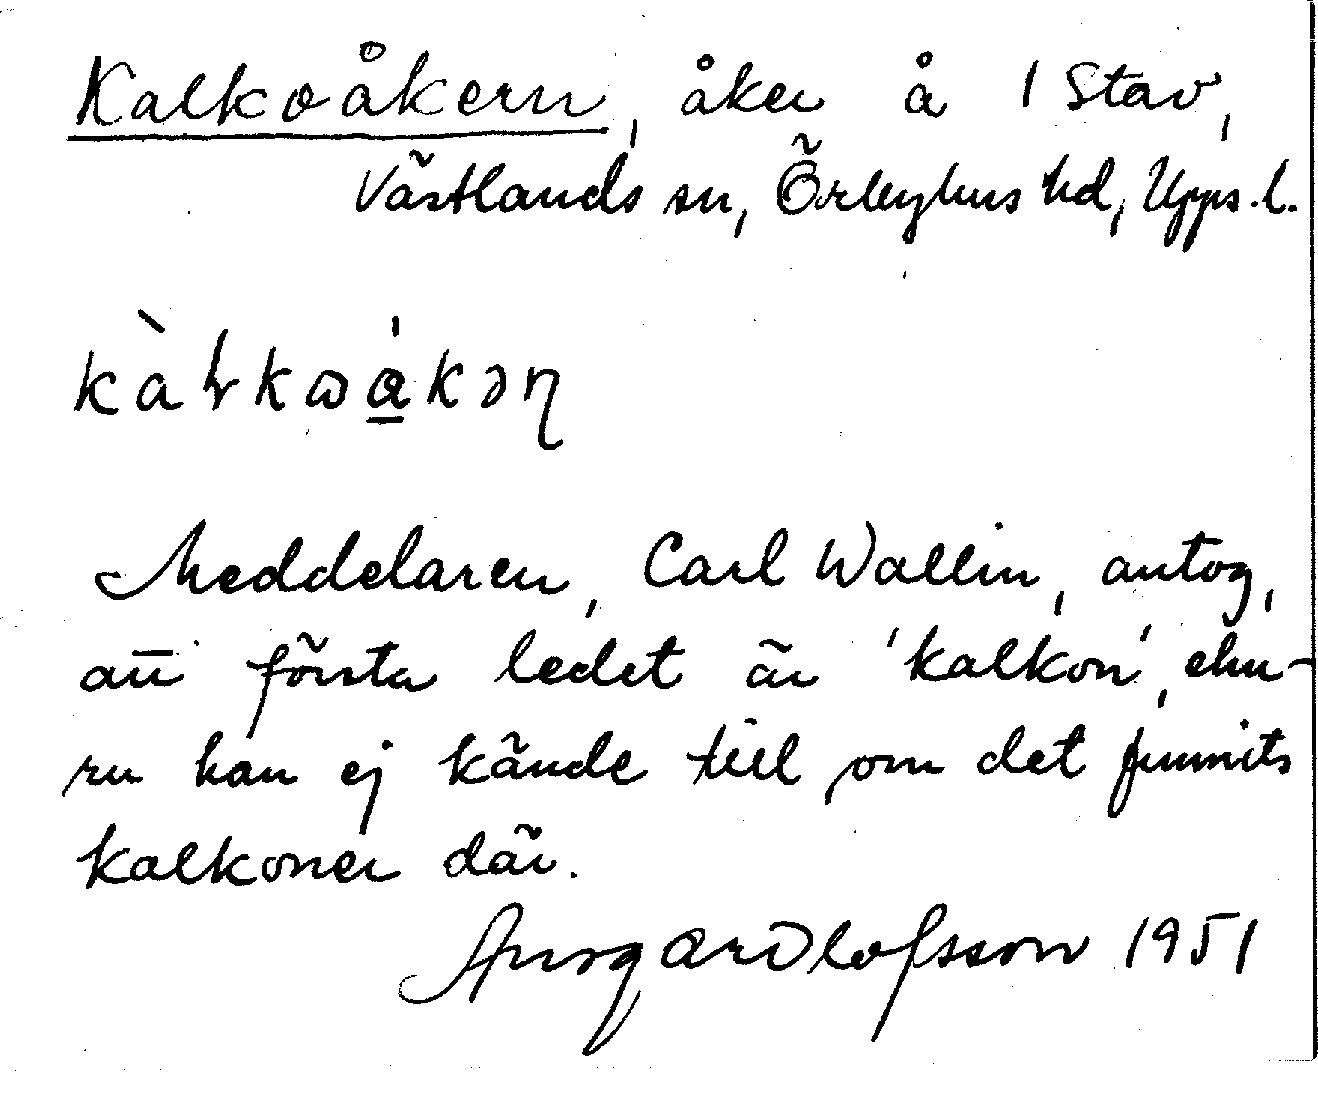 Kalkoåkern, åker å 1 Stav,
Västlands sn, Örbyhus hd, Upps. l.
Meddelaren, Carl Wallin, antog,
att första ledet är 'kalkon', ehu-
ru han ej kände till om det funnits
kalkoner där.
Ansgar Olofsson 1951